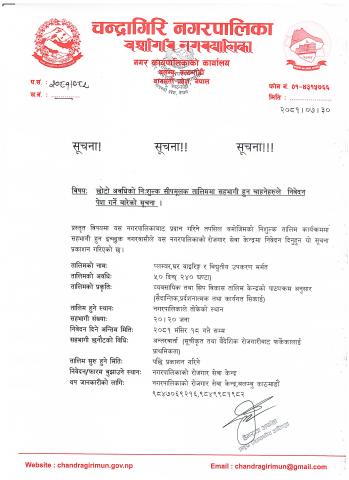 चन्द्रागिरि नगरपालिका
नगर कार्यपालिकाको कार्यालय
बलम्बु, काठमाडौं
प.सं. : २०८१/०८२
च.नं. :
फोन नं. ०१-४३१५७६६
मिति :
२०८१।०७।३०
सूचना! सूचना!! सूचना!!!
विषयः छोटो अवधिको निःशुल्क सीपमूलक तालिममा सहभागी हुन चाहनेहरुले निवेदन
पेश गर्ने बारेको सूचना ।
प्रस्तुत विषयमा यस नगरपालिकाबाट प्रदान गरिने तपसिल बमोजिमको निशुल्क तालिम कार्यक्रममा
सहभागी हुन इच्छुक नगरवासीले यस नगरपालिकाको रोजगार सेवा केन्द्रमा निवेदन दिनुहुन यो सूचना
प्रकाशन गरिएको छ।
तालिमको नामः प्लम्बर,घर वाइरिङ्ग र विद्युतीय उपकरण मर्मत
तालिमको अवधिः ५० दिन( २४० घण्टा)
तालिमको प्रकृतिः व्यवसायिक तथा सिप विकास तालिम केन्द्रको पाठ्यक्रम अनुसार
(सैदान्तिक,प्रर्दशनात्मक तथा कार्यगत सिकाई)
तालिम हुने स्थानः नगरपालिकाले तोकेको स्थान
सहभागी संख्याः २०।२० जना
निवेदन दिने अन्तिम मितिः २०८१ मंसिर १८ गते सम्म
सहभागी छनौटको विधिः अन्तरवार्ता (सूचीकृत तथा वैदेशिक रोजगारीबाट फर्केकालाई
प्राथमिकता)
तालिम सुरु हुने मितिः पछि प्रकाशन गरिने
निवेदन/फारम बुझाउने स्थानः नगरपालिकाको रोजगार सेवा केन्द्र
थप जानकारीको लागिः नगरपालिकाको रोजगार सेवा केन्द्र,बलम्बु काठमाडौं
Website : chandragirimun.gov.np
Email : chandragirimun@gmail.com